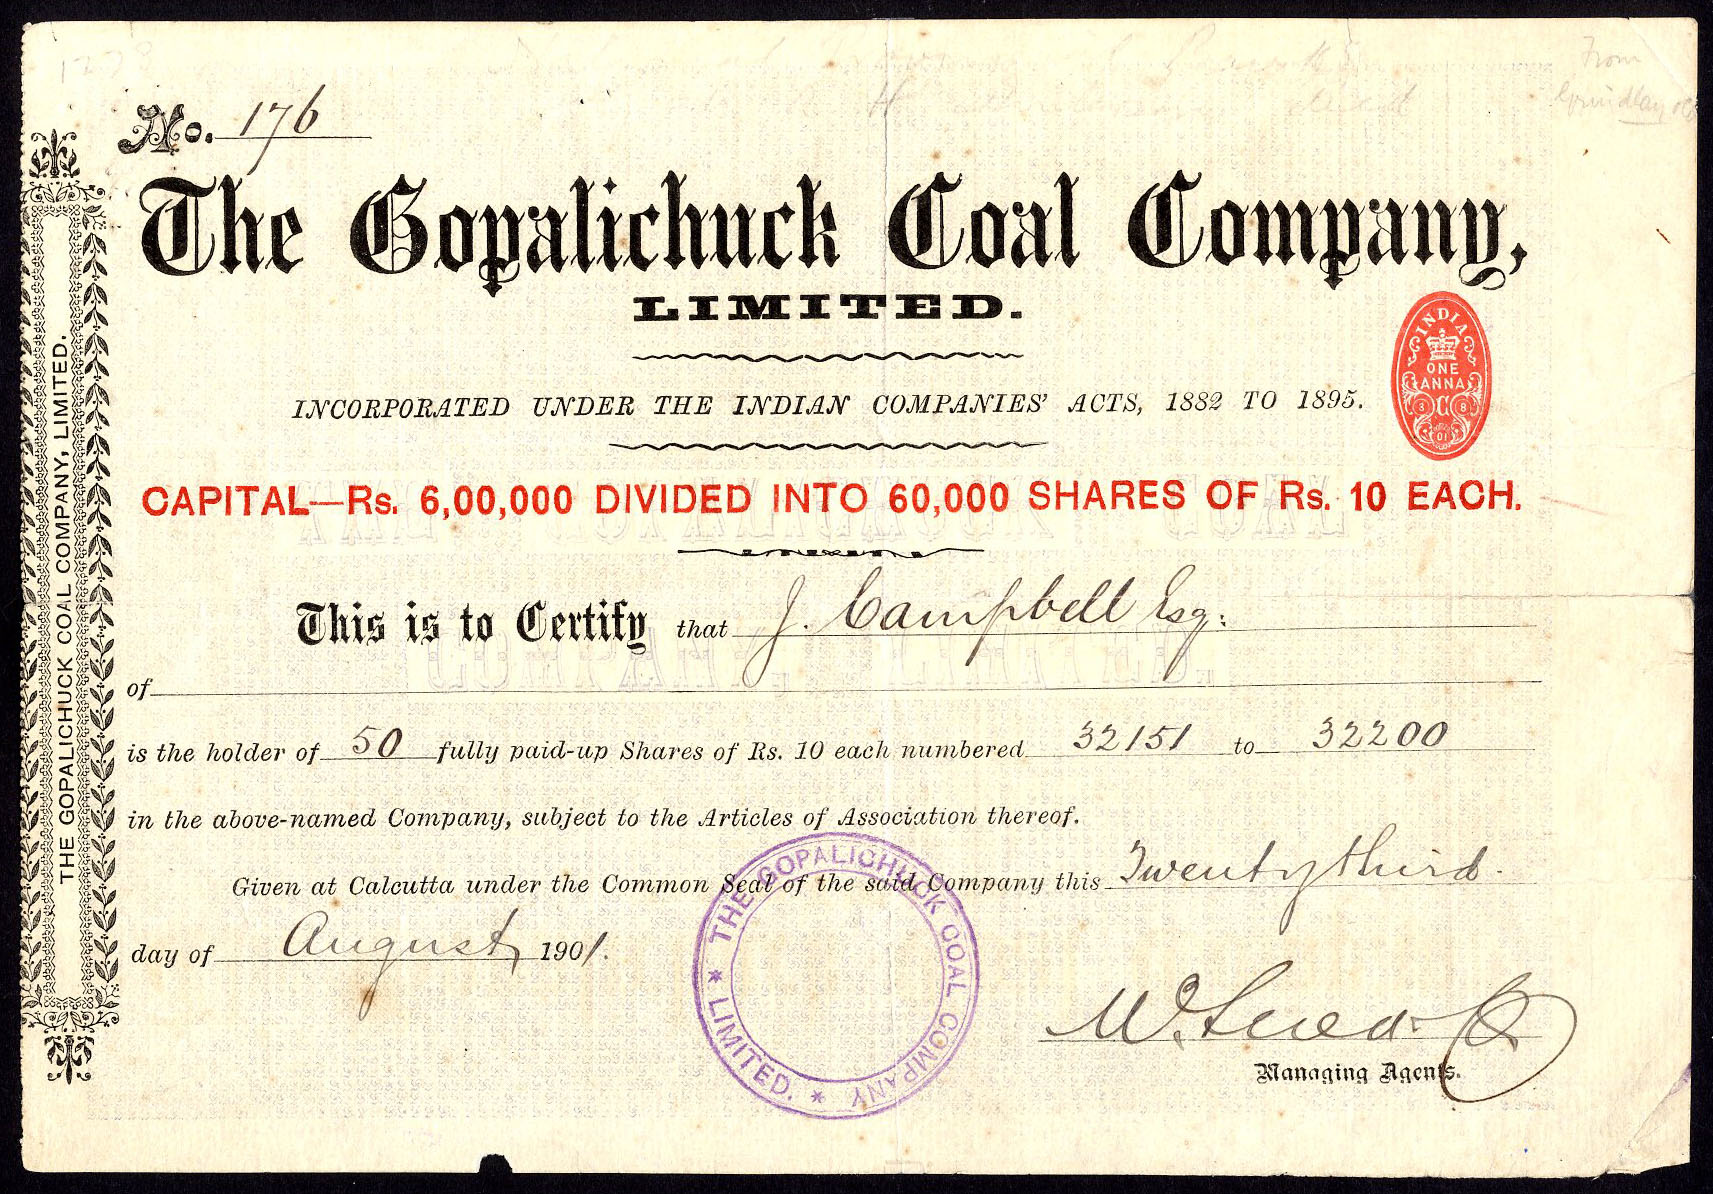 From
No. 176
The Gopalichuck Coal Company,
LIMITED.
INDIA
ONE
ANNA
INCORPORATED UNDER THE INDIAN COMPANIES' ACTS, 1882 TO 1895.
CAPITAL—Rs. 6,00,000 DIVIDED INTO 60,000 SHARES OF Rs. 10 EACH.
This is to Certify that J. Campbell Esq:
of
is the holder of 50 fully paid-up Shares of Rs. 10 each numbered 32151 to 32200
in the above-named Company, subject to the Articles of Association thereof.
Given at Calcutta under the Common Seal of the said Company this Twentythird.
day of August, 1901.
THE GOPALICHUCK COAL COMPANY
* LIMITED. *
Managing Agents.
THE GOPALICHUCK COAL COMPANY, LIMITED.